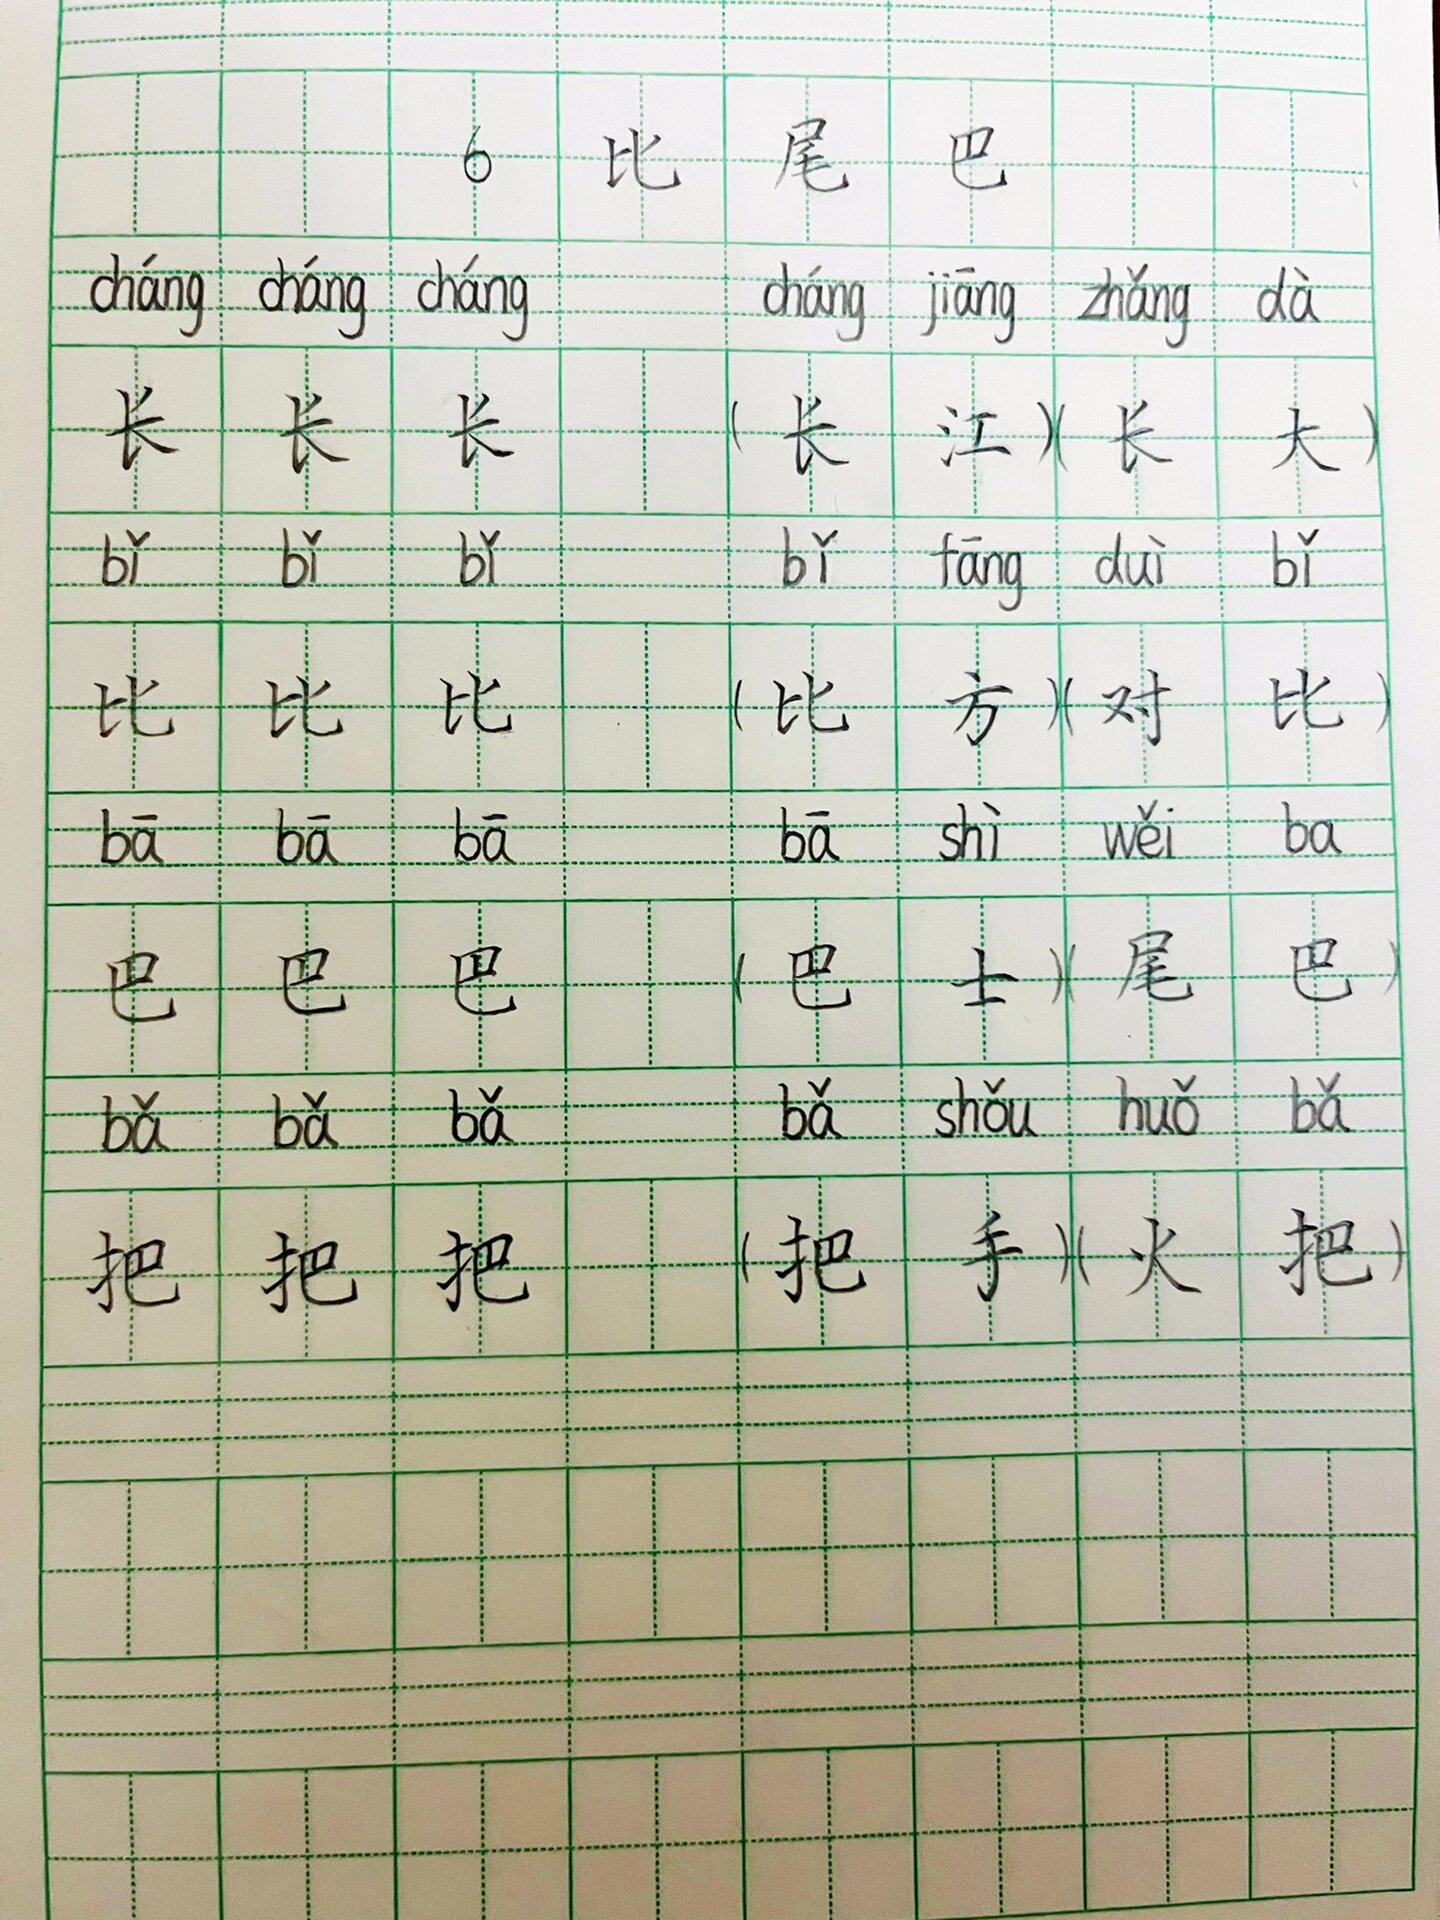 6 比尾巴
cháng cháng cháng cháng jiāng zhǎng dà
长 长 长 (长江)(长大)
bǐ bǐ bǐ bǐ fāng duì bǐ
比 比 比 (比方)(对比)
bā bā bā bā shì wěi ba
巴 巴 巴 (巴士)(尾巴)
bǎ bǎ bǎ bǎ shǒu huǒ bǎ
把 把 把 (把手)(火把)